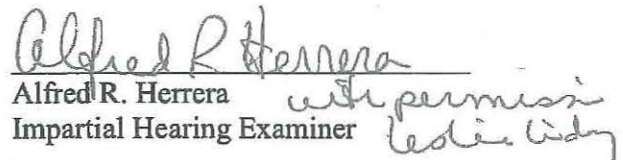 Alfred R Herrera
Alfred R. Herrera
with permission
Impartial Hearing Examiner
Leslie